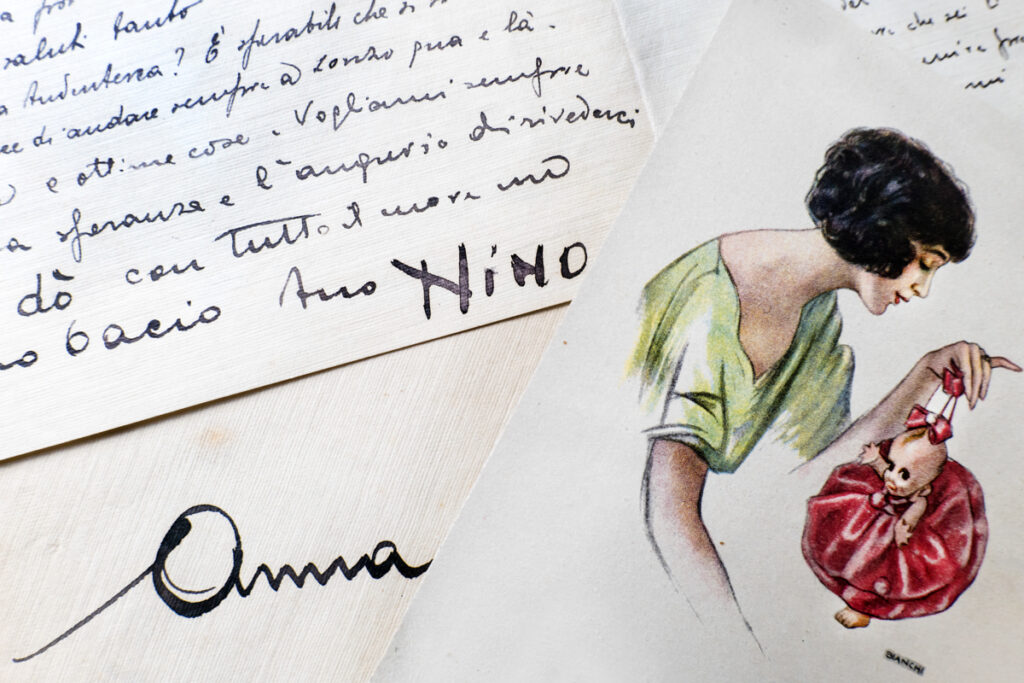 saluti tanto
? È sperabile che si
di andare sempre a zonzo qua e là.
e ottime cose. Vogliami sempre
speranza e l'augurio di rivederci
dò con tutto il more un
bacio tuo NINO
Anna
che sei
mi
BIANCHI